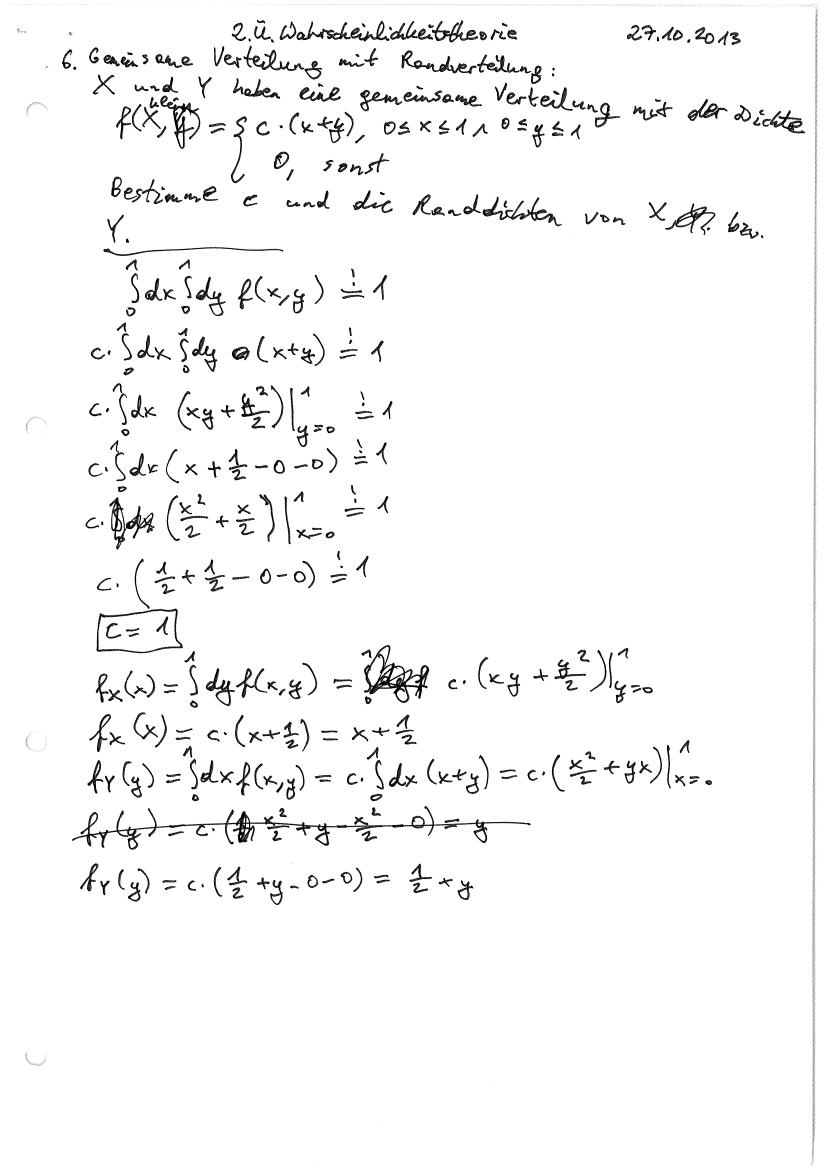 2. Ü. Wahrscheinlichkeitstheorie 27.10.2013
6. Gemeinsame Verteilung mit Randverteilung:
X und Y haben eine gemeinsame Verteilung mit der Dichte
klein
f(X, y) = { c·(x+y), 0≤x≤1 ∧ 0≤y≤1
0, sonst
Bestimme c und die Randdichten von X, bzw.
Y.
∫₀¹dx ∫₀¹dy f(x,y) =! 1
c·∫₀¹dx ∫₀¹dy (x+y) =! 1
c·∫₀¹dx (xy + y²/2)|¹_{y=0} =! 1
c·∫₀¹dx (x + 1/2 - 0 - 0) =! 1
c· (x²/2 + x/2)|¹_{x=0} =! 1
c· (1/2 + 1/2 - 0 - 0) =! 1
c = 1
f_X(x) = ∫₀¹dy f(x,y) = c·(xy + y²/2)|¹_{y=0}
f_X(x) = c·(x + 1/2) = x + 1/2
f_Y(y) = ∫₀¹dx f(x,y) = c·∫₀¹dx (x+y) = c·(x²/2 + yx)|¹_{x=0}
f_Y(y) = c·(x²/2 + y - x²/2 - 0) = y
f_Y(y) = c·(1/2 + y - 0 - 0) = 1/2 + y